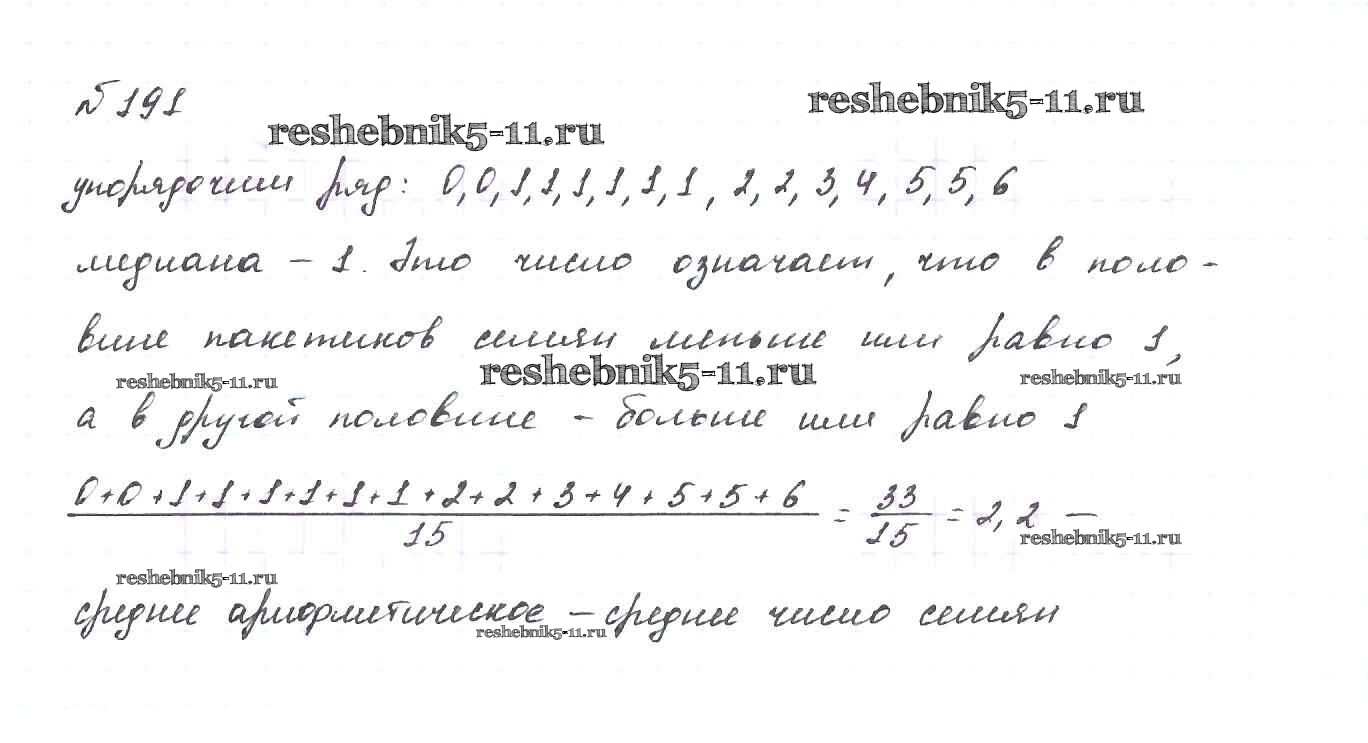 №191
reshebnik5-11.ru
reshebnik5-11.ru
упорядочим ряд: 0,0,1,1,1,1,1,1, 2,2,3,4,5,5,6
медиана – 1. Это число означает, что в поло-
вине пакетиков семян меньше или равно 1,
reshebnik5-11.ru reshebnik5-11.ru reshebnik5-11.ru
а в другой половине – больше или равно 1
0+0+1+1+1+1+1+1+2+2+3+4+5+5+6 / 15 = 33/15 = 2,2 –
reshebnik5-11.ru
reshebnik5-11.ru
среднее арифметическое – среднее число семян
reshebnik5-11.ru